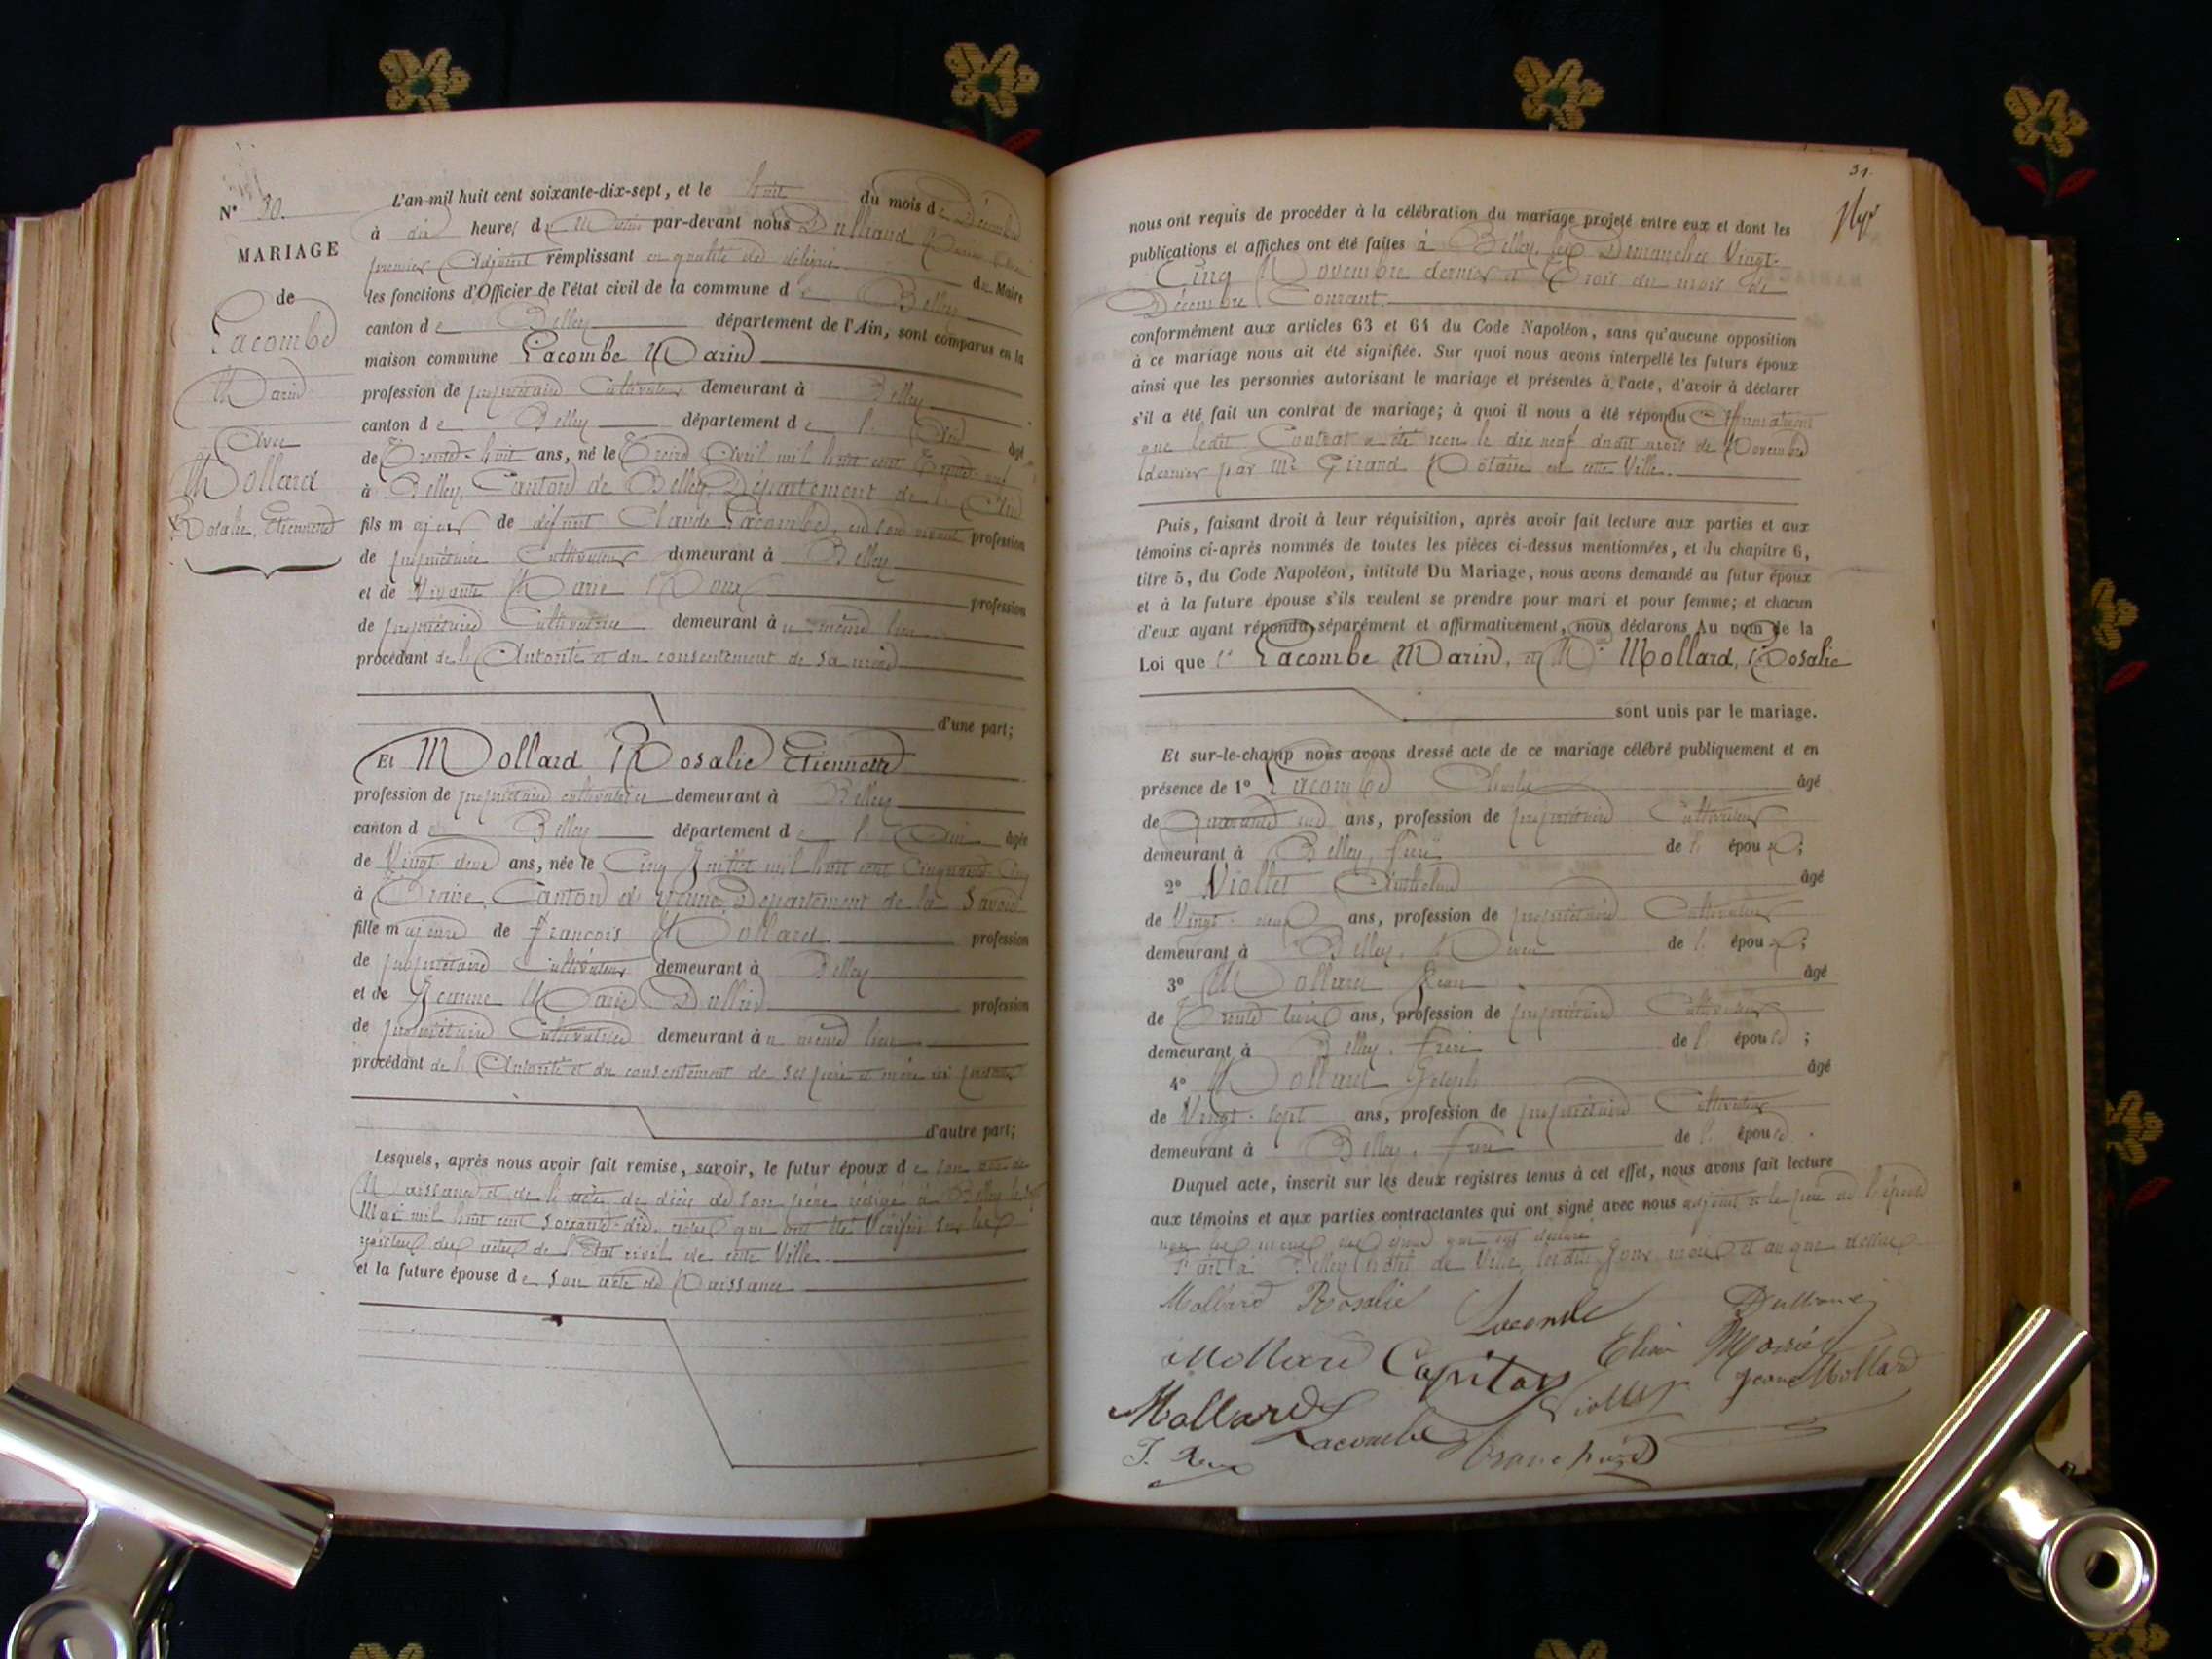 N° 30.
MARIAGE
de
Lacombe
Marin
Avec
Mollard
Rosalie, Etiennette
L'an mil huit cent soixante-dix-sept, et le huit du mois de Décembre
à dix heures du Matin par-devant nous Dulliand
premier Adjoint remplissant en qualité de délégué du Maire
les fonctions d'Officier de l'état civil de la commune de Belley
canton de Belley département de l'Ain, sont comparus en la
maison commune Lacombe Marin
profession de propriétaire Cultivateur demeurant à Belley
canton de Belley département de l'Ain âgé
de Trente-huit ans, né le Treize Avril mil huit cent Trente-neuf
à Belley, Canton de Belley, Département de l'Ain
fils majeur de défunt Claude Lacombe, en son vivant profession
de propriétaire Cultivateur demeurant à Belley
et de Vivante Marie Roux profession
de propriétaire Cultivatrice demeurant au même lieu
procédant de l'Autorité et du consentement de sa mère
d'une part;
Et Mollard Rosalie Etiennette
profession de propriétaire cultivatrice demeurant à Belley
canton de Belley département de l'Ain âgée
de Vingt deux ans, née le Cinq Juillet mil huit cent Cinquante Cinq
à Traize, Canton de Yenne, Département de la Savoie
fille majeure de François Mollard profession
de propriétaire Cultivateur demeurant à Belley
et de Jeanne Marie Dullin profession
de propriétaire Cultivatrice demeurant au même lieu
procédant de l'Autorité et du consentement de ses père et mère ici présents
d'autre part;
Lesquels, après nous avoir fait remise, savoir, le futur époux de son acte de
Naissance et de l'acte de décès de son père rédigé à Belley le
Mai mil huit cent soixante-dix, actes qui ont été Vérifiés sur les
registres des actes de l'Etat civil de cette Ville.
et la future épouse de son acte de Naissance
31.
nous ont requis de procéder à la célébration du mariage projeté entre eux et dont les
publications et affiches ont été faites à Belley, les Dimanches Vingt-
Cinq Novembre dernier et Trois du mois de
Décembre Courant.
conformément aux articles 63 et 64 du Code Napoléon, sans qu'aucune opposition
à ce mariage nous ait été signifiée. Sur quoi nous avons interpellé les futurs époux
ainsi que les personnes autorisant le mariage et présentes à l'acte, d'avoir à déclarer
s'il a été fait un contrat de mariage; à quoi il nous a été répondu Affirmativement
que ledit Contrat a été reçu le dix neuf dudit mois de Novembre
dernier par Me Girand Notaire en cette Ville.
Puis, faisant droit à leur réquisition, après avoir fait lecture aux parties et aux
témoins ci-après nommés de toutes les pièces ci-dessus mentionnées, et du chapitre 6,
titre 5, du Code Napoléon, intitulé Du Mariage, nous avons demandé au futur époux
et à la future épouse s'ils veulent se prendre pour mari et pour femme; et chacun
d'eux ayant répondu séparément et affirmativement, nous déclarons Au nom de la
Loi que Lacombe Marin, et Mollard, Rosalie
sont unis par le mariage.
Et sur-le-champ nous avons dressé acte de ce mariage célébré publiquement et en
présence de 1° Lacombe Charles âgé
de Quarante ans, profession de propriétaire Cultivateur
demeurant à Belley, frère de l'époux;
2° Viollet Anthelme âgé
de Vingt-deux ans, profession de propriétaire Cultivateur
demeurant à Belley, Neveu de l'époux;
3° Mollard Jean âgé
de Trente trois ans, profession de propriétaire Cultivateur
demeurant à Belley, frère de l'épouse;
4° Mollard Joseph âgé
de Vingt-sept ans, profession de propriétaire Cultivateur
demeurant à Belley, frère de l'épouse.
Duquel acte, inscrit sur les deux registres tenus à cet effet, nous avons fait lecture
aux témoins et aux parties contractantes qui ont signé avec nous adjoint et le père de l'épouse
non les mères des époux
Fait à Belley, hôtel de Ville, lesdits jour, mois et an que dessus
Mollard Rosalie Lacombe Dulliand
Mollard Capitan Elisa
Mollard Lacombe Viollet Jean Mollard
J. Roux